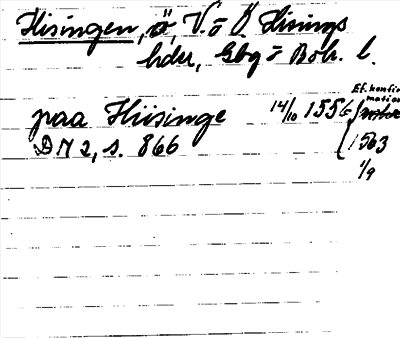 Hisingen, ö, V. o Ö Hisings
hdr, Gbg o Boh. l.
Ef. konfir
mation
paa Hiisinge 14/10 1556
DN 2, s. 866
1563
1/9